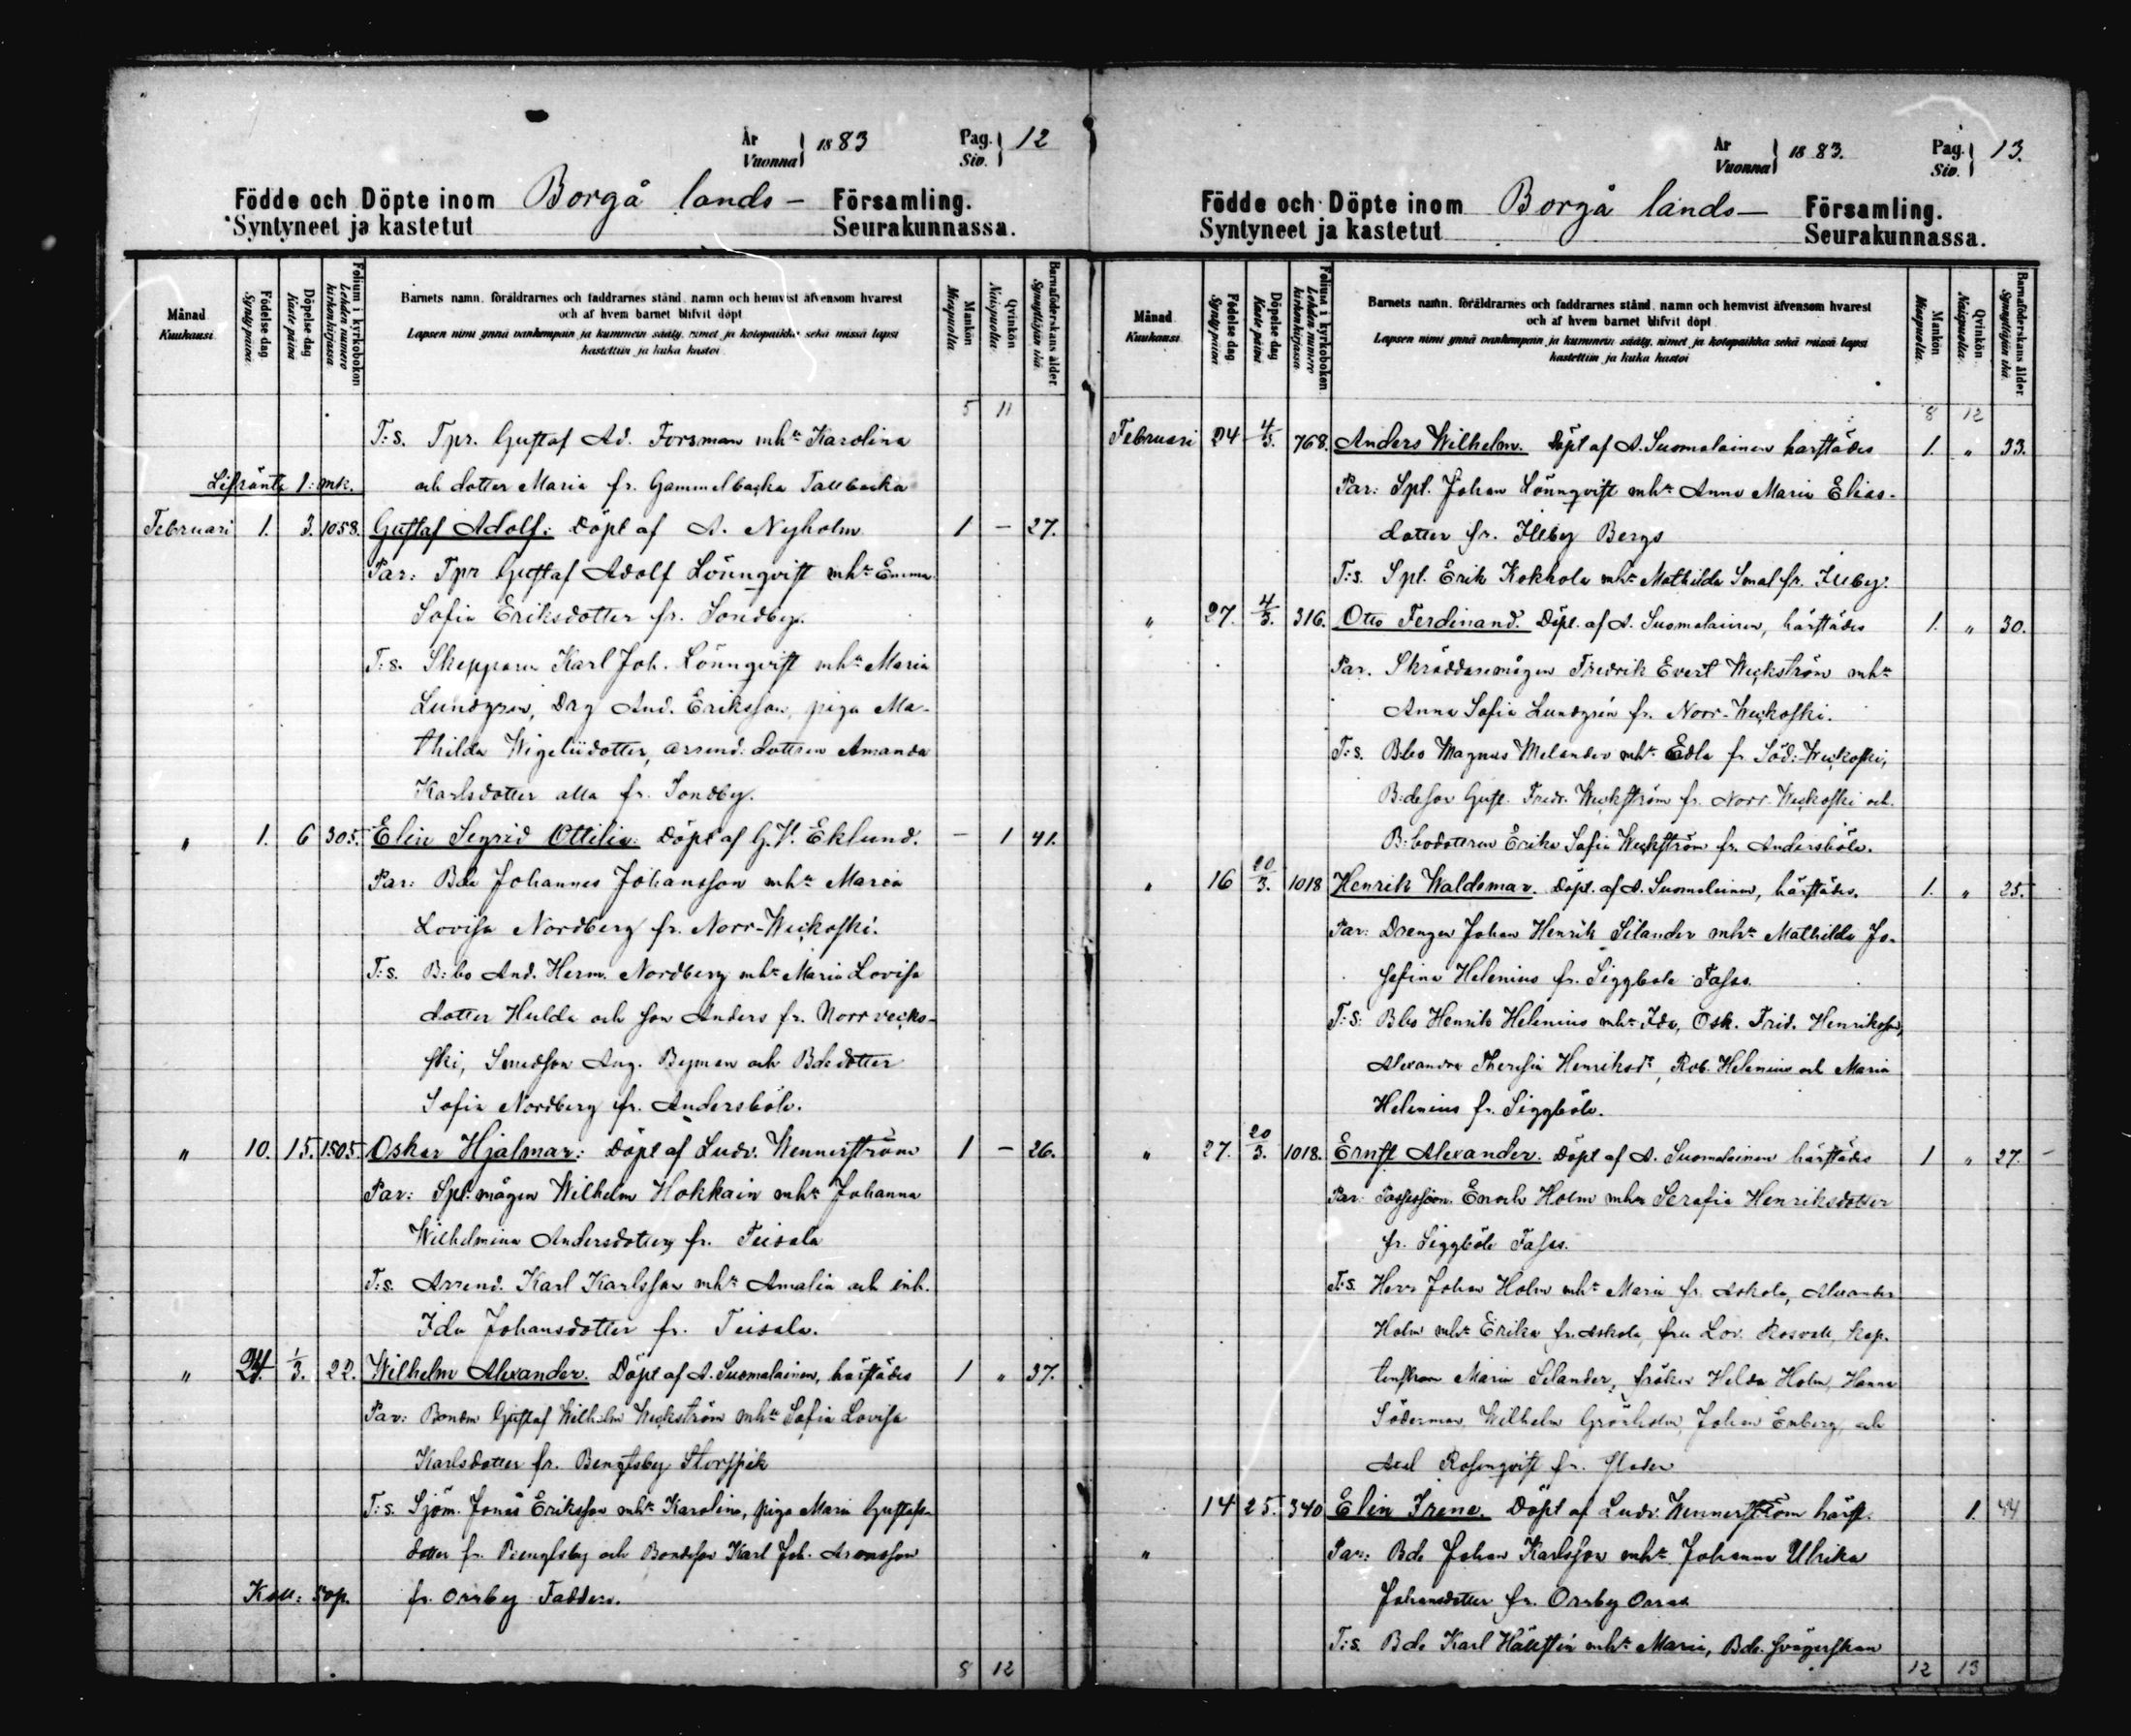 År
Vuonna 1883
Pag.
Siv. 12
Födde och Döpte inom Borgå lands- Församling.
Syntyneet ja kastetut Seurakunnassa.
Månad
Kuukausi
Födelse dag
Synty päivä
Döpelse dag
Kaste päivä
Folium i kyrkoboken
Lehden numero kirkonkirjassa
Barnets namn, föräldrarnes och faddrarnes stånd, namn och hemvist äfvensom hvarest
och af hvem barnet blifvit döpt
Lapsen nimi ynnä vanhempain ja kummein sääty, nimet ja kotopaikka sekä missä lapsi
kastettiin ja kuka kastoi
Mankön
Miespuolia
Qvinkön
Naispuolia
Barnaföderskans ålder
Synnyttäjän ikä
5 11
T:s. Tpr. Gustaf Ad. Forsman mhu Karolina
Lifränte 1: mk. och dotter Maria fr. Gammelbacka Tallbacka
Februari 1. 3. 1058. Gustaf Adolf: Döpt af A. Nyholm 1 – 27.
Par: Tpr Gustaf Adolf Lönnqvist mhu Emma
Sofia Eriksdotter fr. Sondby.
T:s. Skepparen Karl Joh. Lönnqvist mhu Maria
Lundgren, Drg And. Eriksson, piga Ma-
thilda Wigeliidotter, arrend: dottren Amanda
Karlsdotter alla fr. Sondby.
" 1. 6 305. Elin Segrid Ottilia: Döpt af G. V. Eklund. – 1 41.
Par: Bde Johannes Johansson mhu Maria
Lovisa Nordberg fr. Norr-Weckoski.
T:s. B:bo And. Herm. Nordberg mhu Maria Lovisa
dotter Hulda och son Anders fr. Norrvecko-
ski, Smedson Aug. Byman och Bdedotter
Sofia Nordberg fr. Andersböle.
" 10. 15. 1505. Oskar Hjalmar: Döpt af Ludv. Wennerström 1 – 26.
Par: Spl: mågen Wilhelm Hokkain mhu Johanna
Wilhelmina Andersdotter fr. Teisala
T:s. Arrend. Karl Karlsson mhu Amalia och inh.
Ida Johansdotter fr. Teisala.
" 24. 1/3. 22. Wilhelm Alexander. Döpt af A. Suomalainen, härstädes 1 " 37.
Par: Bondn Gustaf Wilhelm Weckström mhu Sofia Lovisa
Karlsdotter fr. Bengtsby Storspik
T:s. Sjöm. Jonas Eriksson mhu Karolina, piga Maria Gustafs-
dotter fr. Bengtsby och Bondeson Karl Joh. Aronsson
Koll: 50p. fr. Orrby Fadders.
8 12
År
Vuonna 1883.
Pag.
Siv. 13.
Födde och Döpte inom Borgå lands- Församling.
Syntyneet ja kastetut Seurakunnassa.
Månad
Kuukausi
Födelse dag
Synty päivä
Döpelse dag
Kaste päivä
Folium i kyrkoboken
Lehden numero kirkonkirjassa
Barnets namn, föräldrarnes och faddrarnes stånd, namn och hemvist äfvensom hvarest
och af hvem barnet blifvit döpt
Lapsen nimi ynnä vanhempain ja kummein sääty, nimet ja kotopaikka sekä missä lapsi
kastettiin ja kuka kastoi
Mankön
Miespuolia
Qvinkön
Naispuolia
Barnaföderskans ålder
Synnyttäjän ikä
8 12
Februari 24 4/3. 768. Anders Wilhelm. Döpt af A. Suomalainen härstädes 1. " 33.
Par: Spl. Johan Lönnqvist mhu Anna Maria Elias-
dotter fr. Illby Bergs
T:s. Spl. Erik Kokkola mhu Mathilda Smal fr. Illby.
" 27. 4/3. 316. Otto Ferdinand. Döpt. af A. Suomalainen, härstädes 1. " 30.
Par. Skräddaremågen Fredrik Evert Weckström mhu
Anna Sofia Lundgrén fr. Norr-Weckoski.
T:s. B:bo Magnus Melander mhu Edla fr Söd: Weckoski,
B:deson Gust. Fredr. Weckström fr. Norr Weckoski och
B:bodottren Erika Sofia Weckström fr. Andersböle.
" 16 20/3. 1018 Henrik Waldemar. Döpt. af A. Suomalainen, härstädes. 1. " 25.
Par: Drengen Johan Henrik Silander mhu Mathilda Jo-
sefina Helenius fr. Siggböle Tasas.
T:s: Bbo Henrik Helenius mhu Ida, Osk. Frid. Henriksson,
Alexandra Theresia Henriksdr, Rob. Helenius och Maria
Helenius fr. Siggböle.
" 27. 20/3. 1018. Ernst Alexander. Döpt af A. Suomalainen härstädes 1 " 27.
Par: Possession. Enoch Holm mhu Serafia Henriksdotter
fr. Siggböle Tasas.
T:s. Herr Johan Holm mhu Maria fr. Askola, Alexander
Holm mhu Erika fr. Askola, fru Lov. Rosvall, kap-
Maria Selander, fröken Helda Holm, Hanna
Söderman, Wilhelm Grönholm, Johan Enberg, och
Axel Rosenqvist fr.
" 14 25. 340 Elin Irene. Döpt af Ludv. Wennerström härst. 1. 44
Par: Bde Johan Karlsson mhu Johanna Ulrika
Johansdotter fr. Orrby Orras
T:s. Bde Karl Hällstén mhu Maria, Bde. svägerskan
12 13